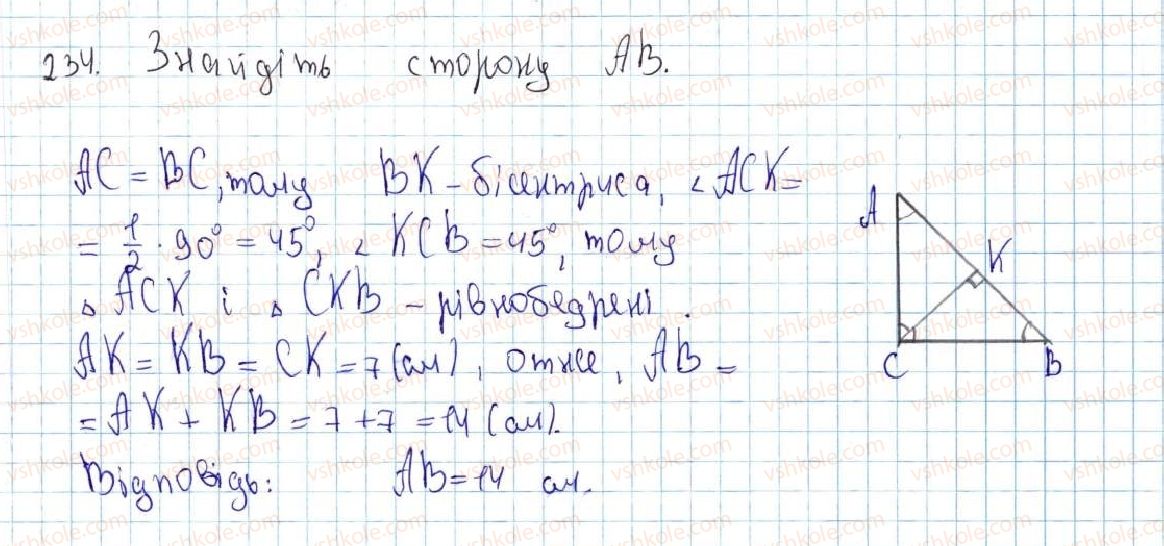 234. Знайдіть сторону AB.
AC = BC, тому BK – бісектриса, ∠ACK =
= 1/2 · 90° = 45°, ∠KCB = 45°, тому
△ACK і △CKB – рівнобедрені.
AK = KB = CK = 7 (см), отже, AB =
= AK + KB = 7 + 7 = 14 (см).
Відповідь: AB = 14 см.
A
K
C
B
vshkole.com